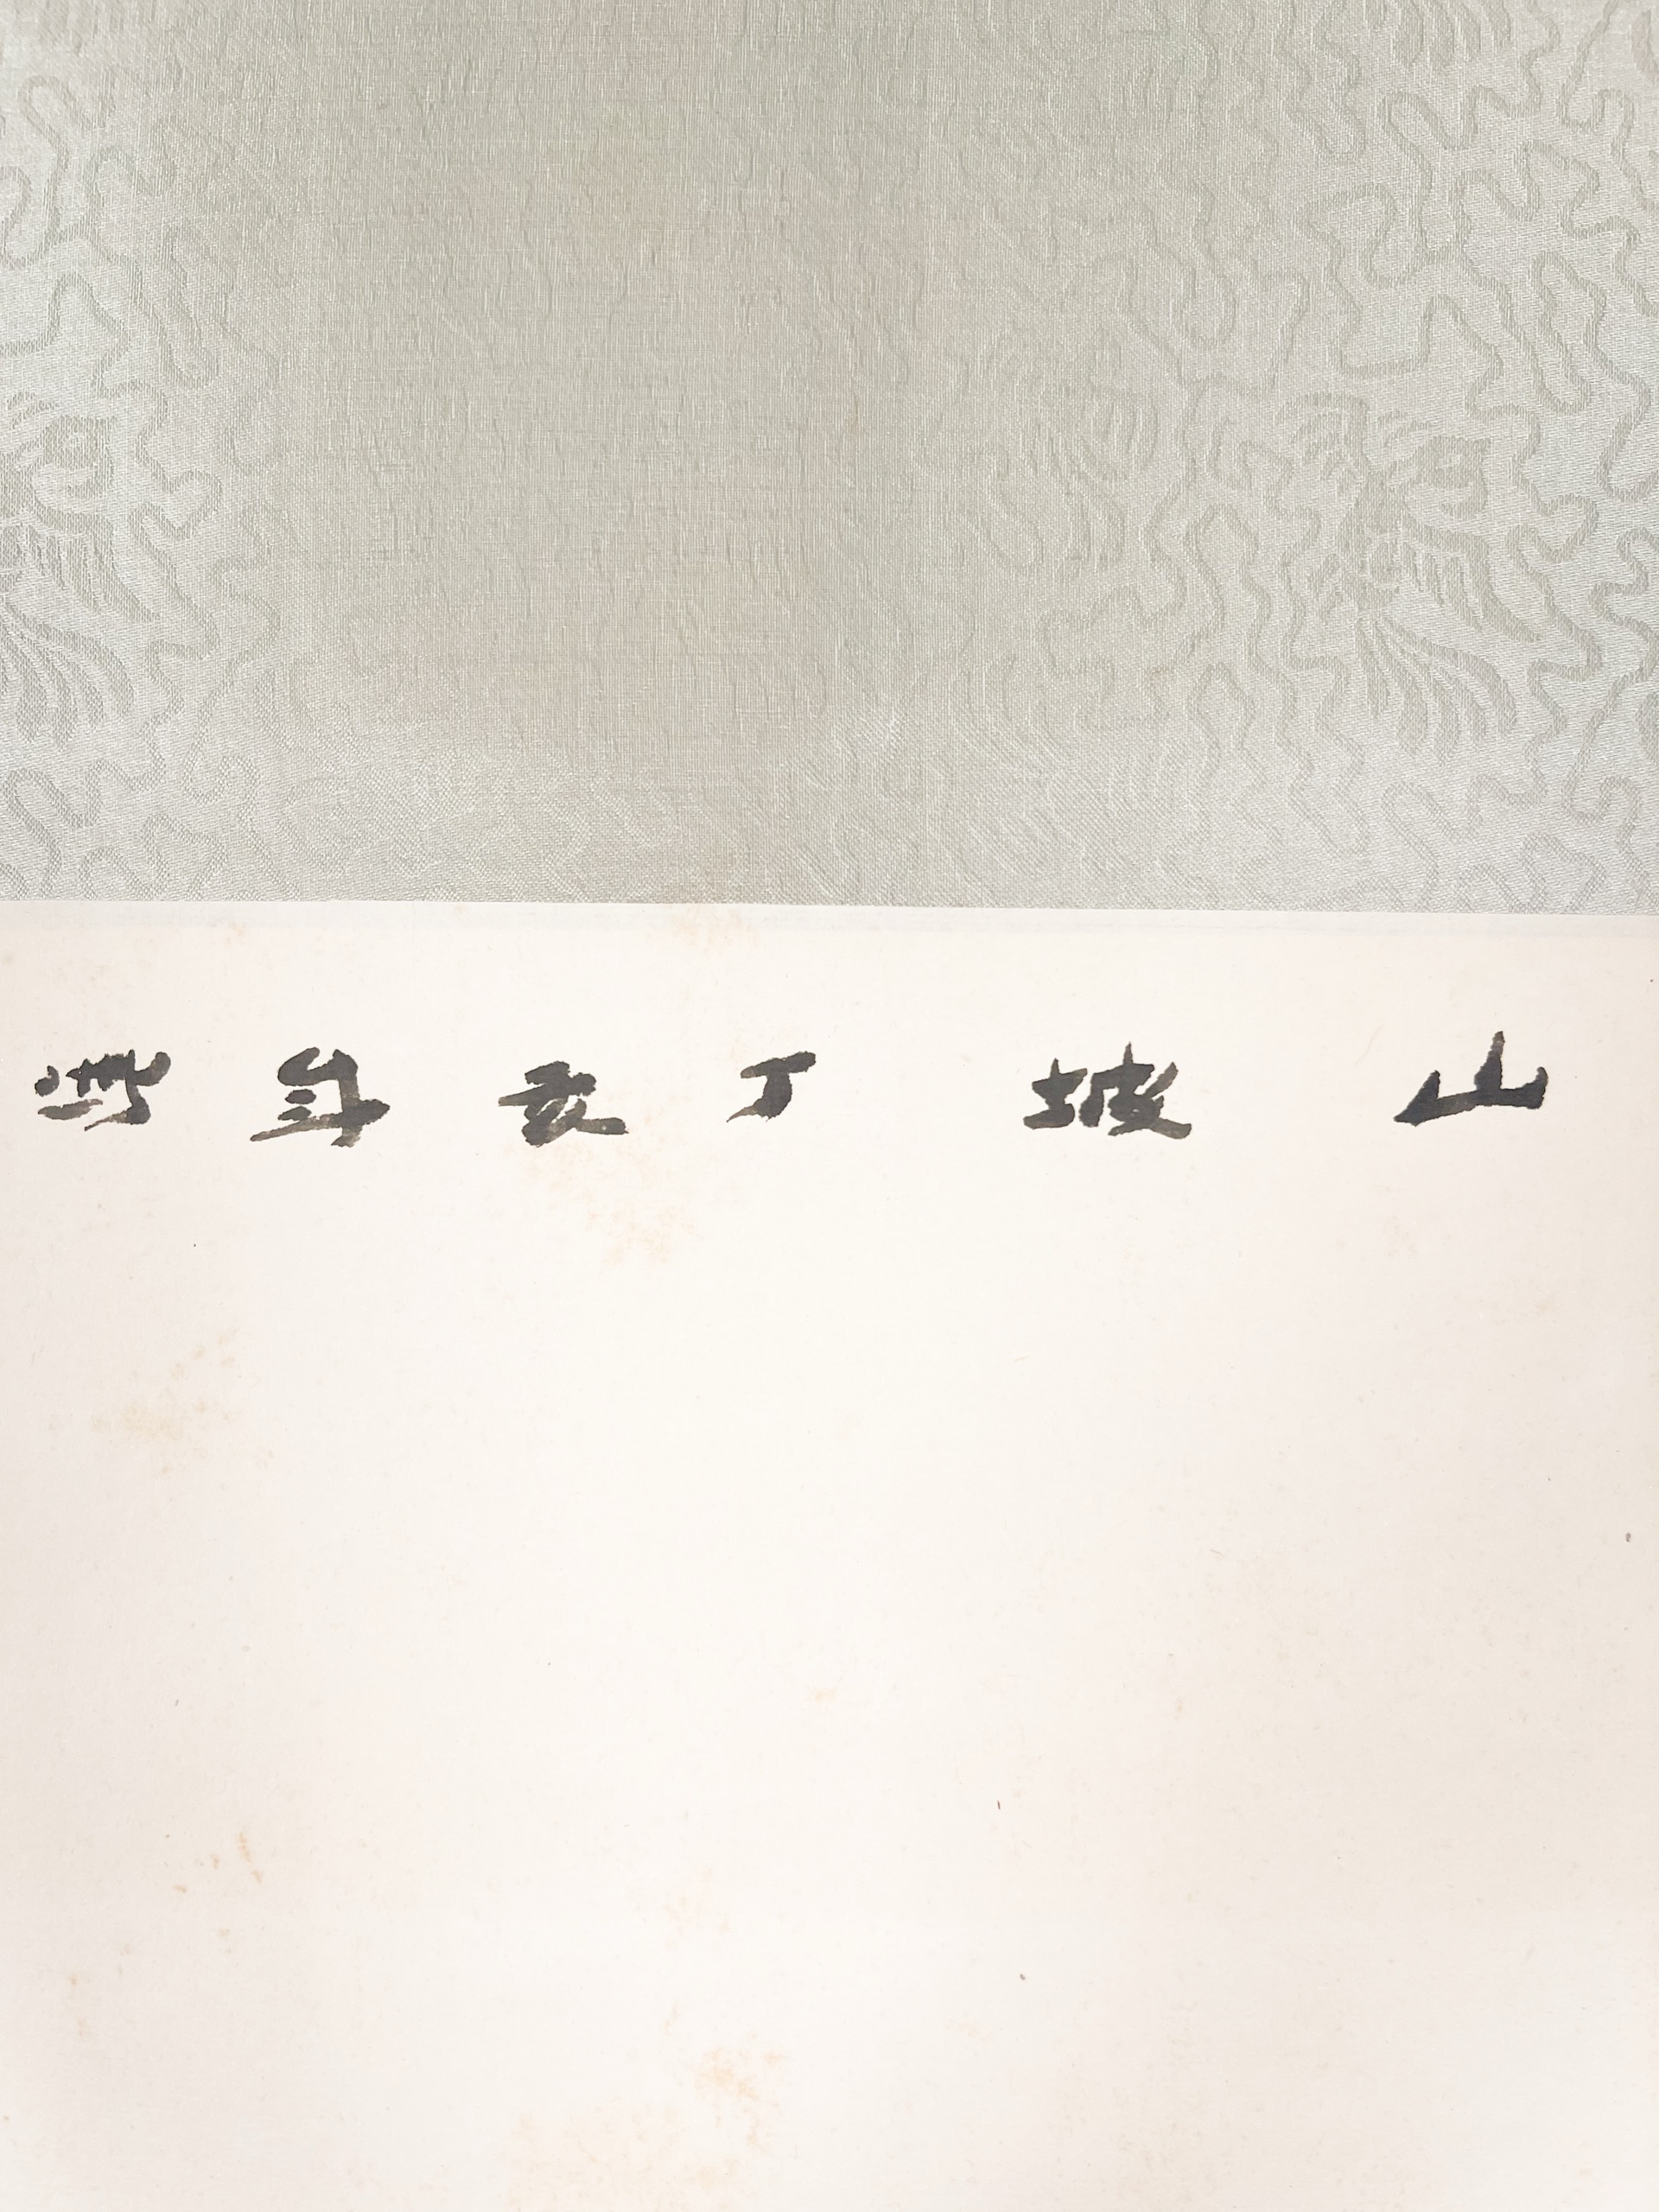 山坡丁亥年